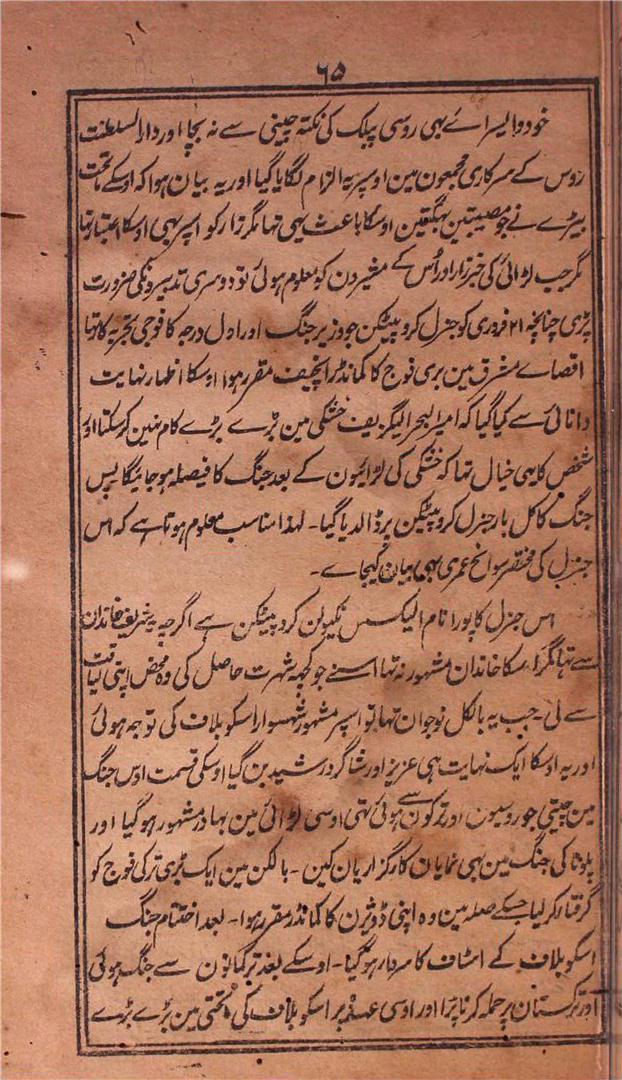 ٦٥
خود والیسراے بہی روسی پبلک کی نکتہ چینی سے نہ بچا اور دارالسلطنت
روس کے سرکاری مجمعون مین اوسپر یہ الزام لگایا گیا اور یہ بیان ہوا کہ اوسکے ماتحت
بیڑے نے جو مصیبتین بہگتین اوسکا باعث یہی تہا مگر زار کو اسپر بہی اوسکا اعتبار تہا
مگر جب لڑائی کی خبر زار اور اُس کے مشیردن کو معلوم ہوئی تو دوسری تدبیرونکی ضرورت
پڑی چنانچہ ۲۱ فروری کو جنرل کروپیٹکن جو وزیر جنگ اور اول درجہ کا فوجی تجربہ کار تہا
اقصاے مشرق مین بری فوج کا کمانڈر انچیف مقرر ہوا اوسکا اظہار نہایت
دانائی سے کیا گیا کہ امیر البحر الیگزیف خشکی مین بڑے بڑے کام نہین کر سکتا اور
شخص کا ہی خیال تہا کہ خشکی کی لڑائیون کے بعد جنگ کا فیصلہ ہو جائیگا پس
جنگ کا کل بار جنرل کروپیٹکن پر ڈالدیا گیا۔ لہذا مناسب معلوم ہوتا ہے کہ اس
جنرل کی مختصر سوانح عمری بہی بیان کیجاے۔
اس جنرل کا پورا نام الیکسس نیکولن کروپیٹکن ہے اگرچہ یہ شریف خاندان
سے تہا مگر اسکا خاندان مشہور نہ تہا اسنے جو کچہہ شہرت حاصل کی وہ محض اپنی لیاقت
سے لی۔ جب یہ بالکل نوجوان تہا تو اسپر مشہور شہسوار اسکوبلاف کی توجہ ہوئی
اور یہ اوسکا ایک نہایت ہی عزیز اور شاگرد رشید بن گیا اوسکی قسمت اوس جنگ
مین چیتی جو روسیون اور ترکون سے ہوئی تہی اوسی لڑائی مین بہادر مشہور ہو گیا اور
پلونا کی جنگ مین بہی نمایان کارگزاریان کین۔ بالکن مین ایک بڑی ترکی فوج کو
گرفتار کر لیا جسکے صلہ مین وہ اپنی ڈویژن کا کمانڈر مقرر ہوا۔ بعد اختتام جنگ
اسکوبلاف کے اسٹاف کا سردار ہو گیا۔ اوسکے بعد ترکمانون سے جنگ ہوئی
اور ترکستان پر حملہ کرنا پڑا اور اوسی عہدہ پر اسکوبلاف کی ماتحتی مین بڑے بڑے